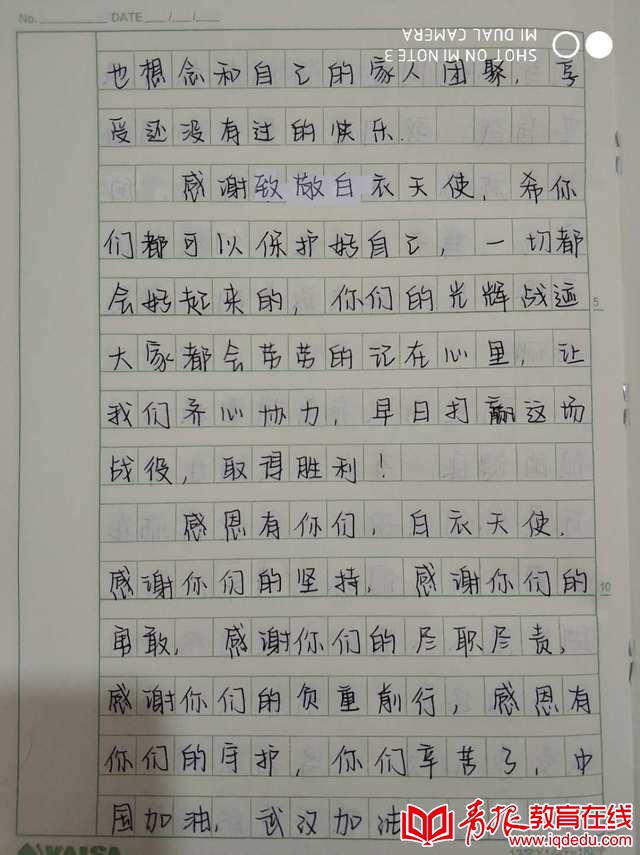 No. DATE / /
SHOT ON MI NOTE 3
MI DUAL CAMERA
也想念和自己的家人团聚，享
受还没有过的快乐.
感谢致敬白衣天使，希你
们都可以保护好自己，一切都
会好起来的，你们的光辉战迹
5
大家都会劳劳的记在心里，让
我们齐心协力，早日打赢这场
战役，取得胜利！
感恩有你们，白衣天使.
感谢你们的坚持，感谢你们的
10
勇敢，感谢你们的尽职尽责，
感谢你们的负重前行，感恩有
你们的守护，你们辛苦了，中
国加油，武汉加油
KAISA
青报教育在线
www.iqdedu.com